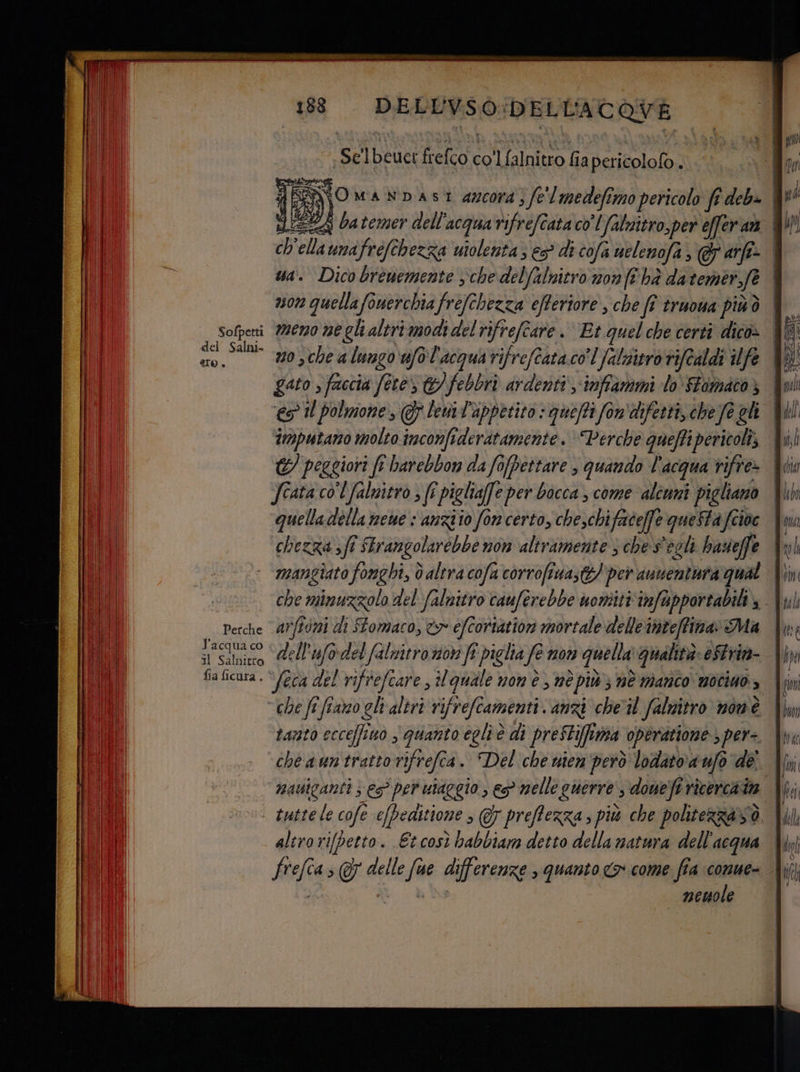 188 DELL'VSO DELL'ACQVE
Se'l beuer freſco co'l ſalnitro ſia pericoloſo.
DOMANDASI ancora, ſe'l medeſimo pericolo ſi deb-
ba temer dell'acqua rifreſcata co'l ſalnitro, per eſſer an
ch'ella una freſchezza uiolenta, & di coſa uelenoſa, & arſi-
ua. Dico breuemente, che del ſalnitro non ſi hà da temer, ſe
non quella ſouerchia freſchezza eſteriore, che ſi truoua più ò
Soſpetti
del Salni-
tro.
meno ne gli altri modi del rifreſcare. Et quel che certi dico-
no, che a lungo uſo l'acqua rifreſcata co'l ſalnitro riſcaldi il fe
gato, faccia ſete, & febbri ardenti, infiammi lo ſtomaco,
& il polmone, & leui l'appetito: queſti ſon difetti, che ſe gli
imputano molto inconſideratamente. Perche queſti pericoli,
& peggiori ſi harebbon da ſoſpettare, quando l'acqua rifre-
ſcata co'l ſalnitro, ſi pigliaſſe per bocca, come alcuni pigliano
quella della neue: anzi io ſon certo, che, chi faceſſe queſta ſcioc
chezza, ſi ſtrangolarebbe non altramente, che s'egli haueſſe
mangiato fonghi, ò altra coſa corroſiua, & per auuentura qual
che minuzzolo del ſalnitro cauſerebbe uomiti inſupportabili,
Perche
l'acqua co
il Salnitro
ſia ſicura.
arſioni di ſtomaco, & eſcoriation mortale delle inteſtina. Ma
dell'uſo del ſalnitro non ſi piglia ſe non quella qualità eſtrin-
ſeca del rifreſcare, il quale non è, nè più, nè manco nociuo,
che ſi ſiano gli altri rifreſcamenti. anzi che il ſalnitro non è
tanto ecceſſiuo, quanto egli è di preſtiſſima operatione, per-
che a un tratto rifreſca. Del che uien però lodato a uſo de'
nauiganti, & per uiaggio, & nelle guerre, doue ſi ricerca in
tutte le coſe eſpeditione, & preſtezza, più che politezza, ò
altro riſpetto. Et così habbiam detto della natura dell'acqua
freſca, & delle ſue differenze, quanto & come ſia conue-
neuole